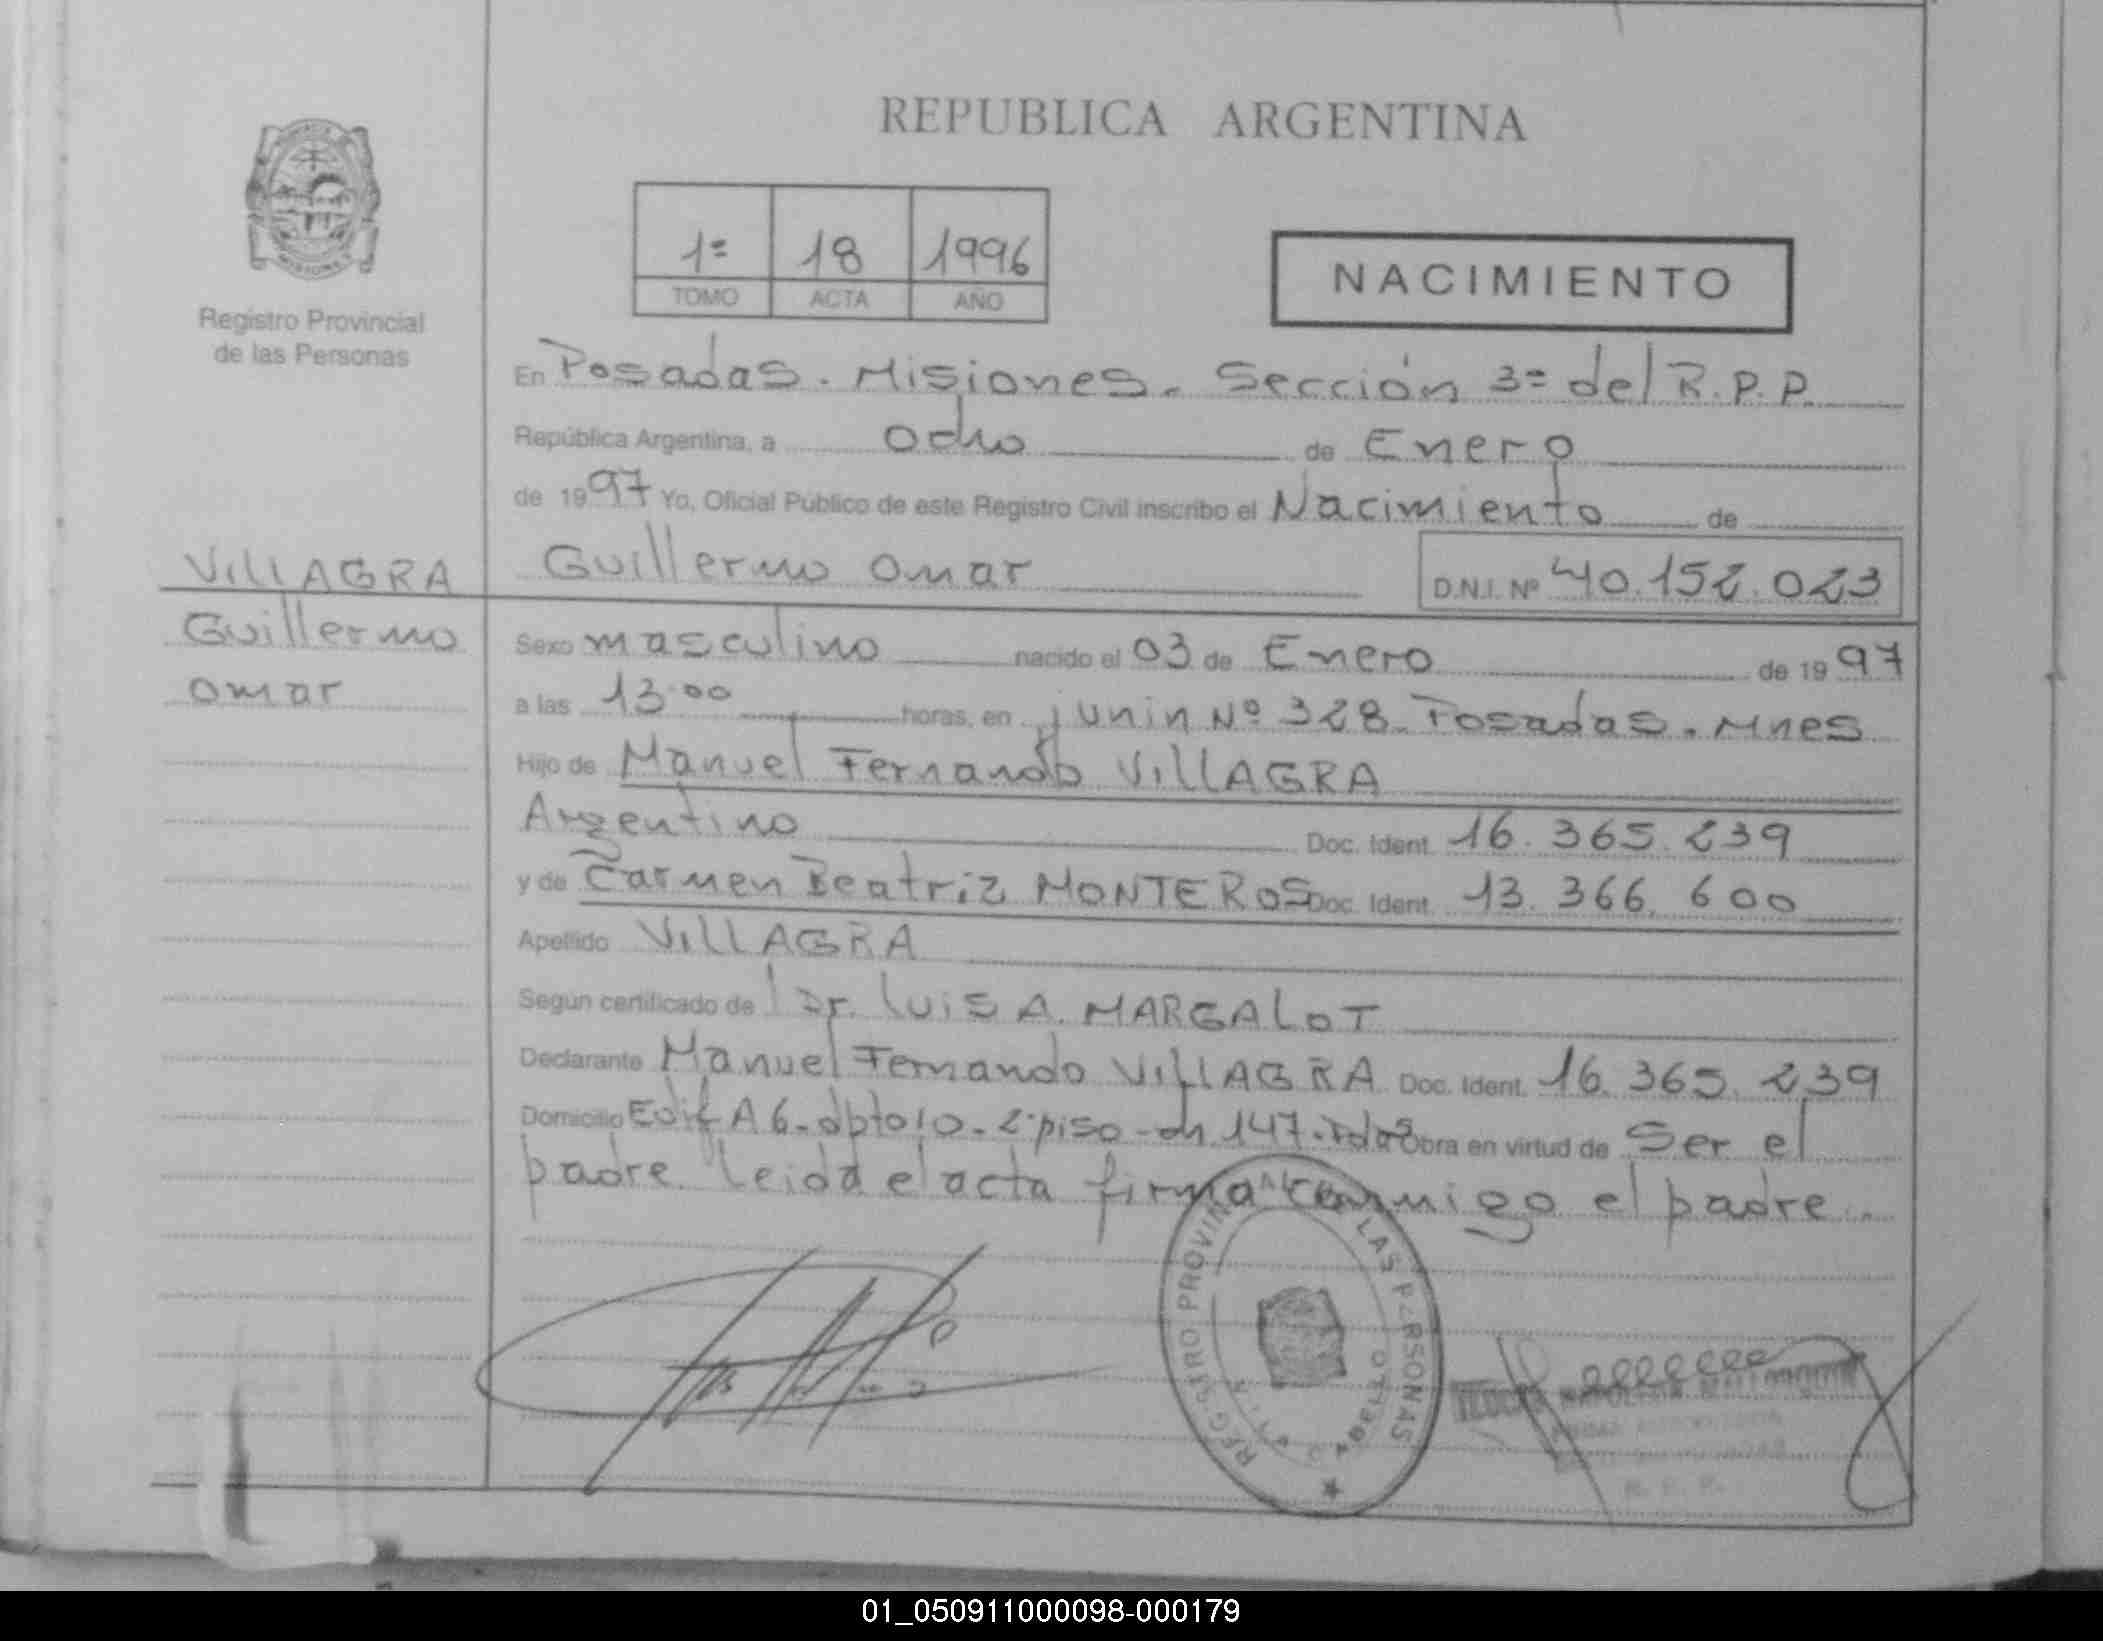 REPUBLICA ARGENTINA
Registro Provincial
de las Personas
1º 18 1996
TOMO ACTA AÑO
NACIMIENTO
En Posadas. Misiones. Sección 3º del R.P.P.
República Argentina, a ocho de Enero
de 1997 Yo, Oficial Público de este Registro Civil inscribo el Nacimiento de
VILLAGRA Guillermo Omar D.N.I. Nº 40.152.023
Guillermo
Omar
Sexo masculino nacido el 03 de Enero de 1997
a las 13:00 horas, en Junin Nº 328. Posadas. Mnes
Hijo de Manuel Fernando VILLAGRA
Argentino Doc. Ident. 16.365.239
y de Carmen Beatriz MONTEROS Doc. Ident. 13.366.600
Apellido VILLAGRA
Según certificado de Dr. Luis A. MARGALOT
Declarante Manuel Fernando VILLAGRA Doc. Ident. 16.365.239
Domicilio Edif A 6. dpto 10. 2º piso - ch 147. Pdas Obra en virtud de Ser el
padre. Leida el acta firma conmigo el padre.
REGISTRO PROVINCIAL LAS PERSONAS
R. P. P.
01_050911000098-000179